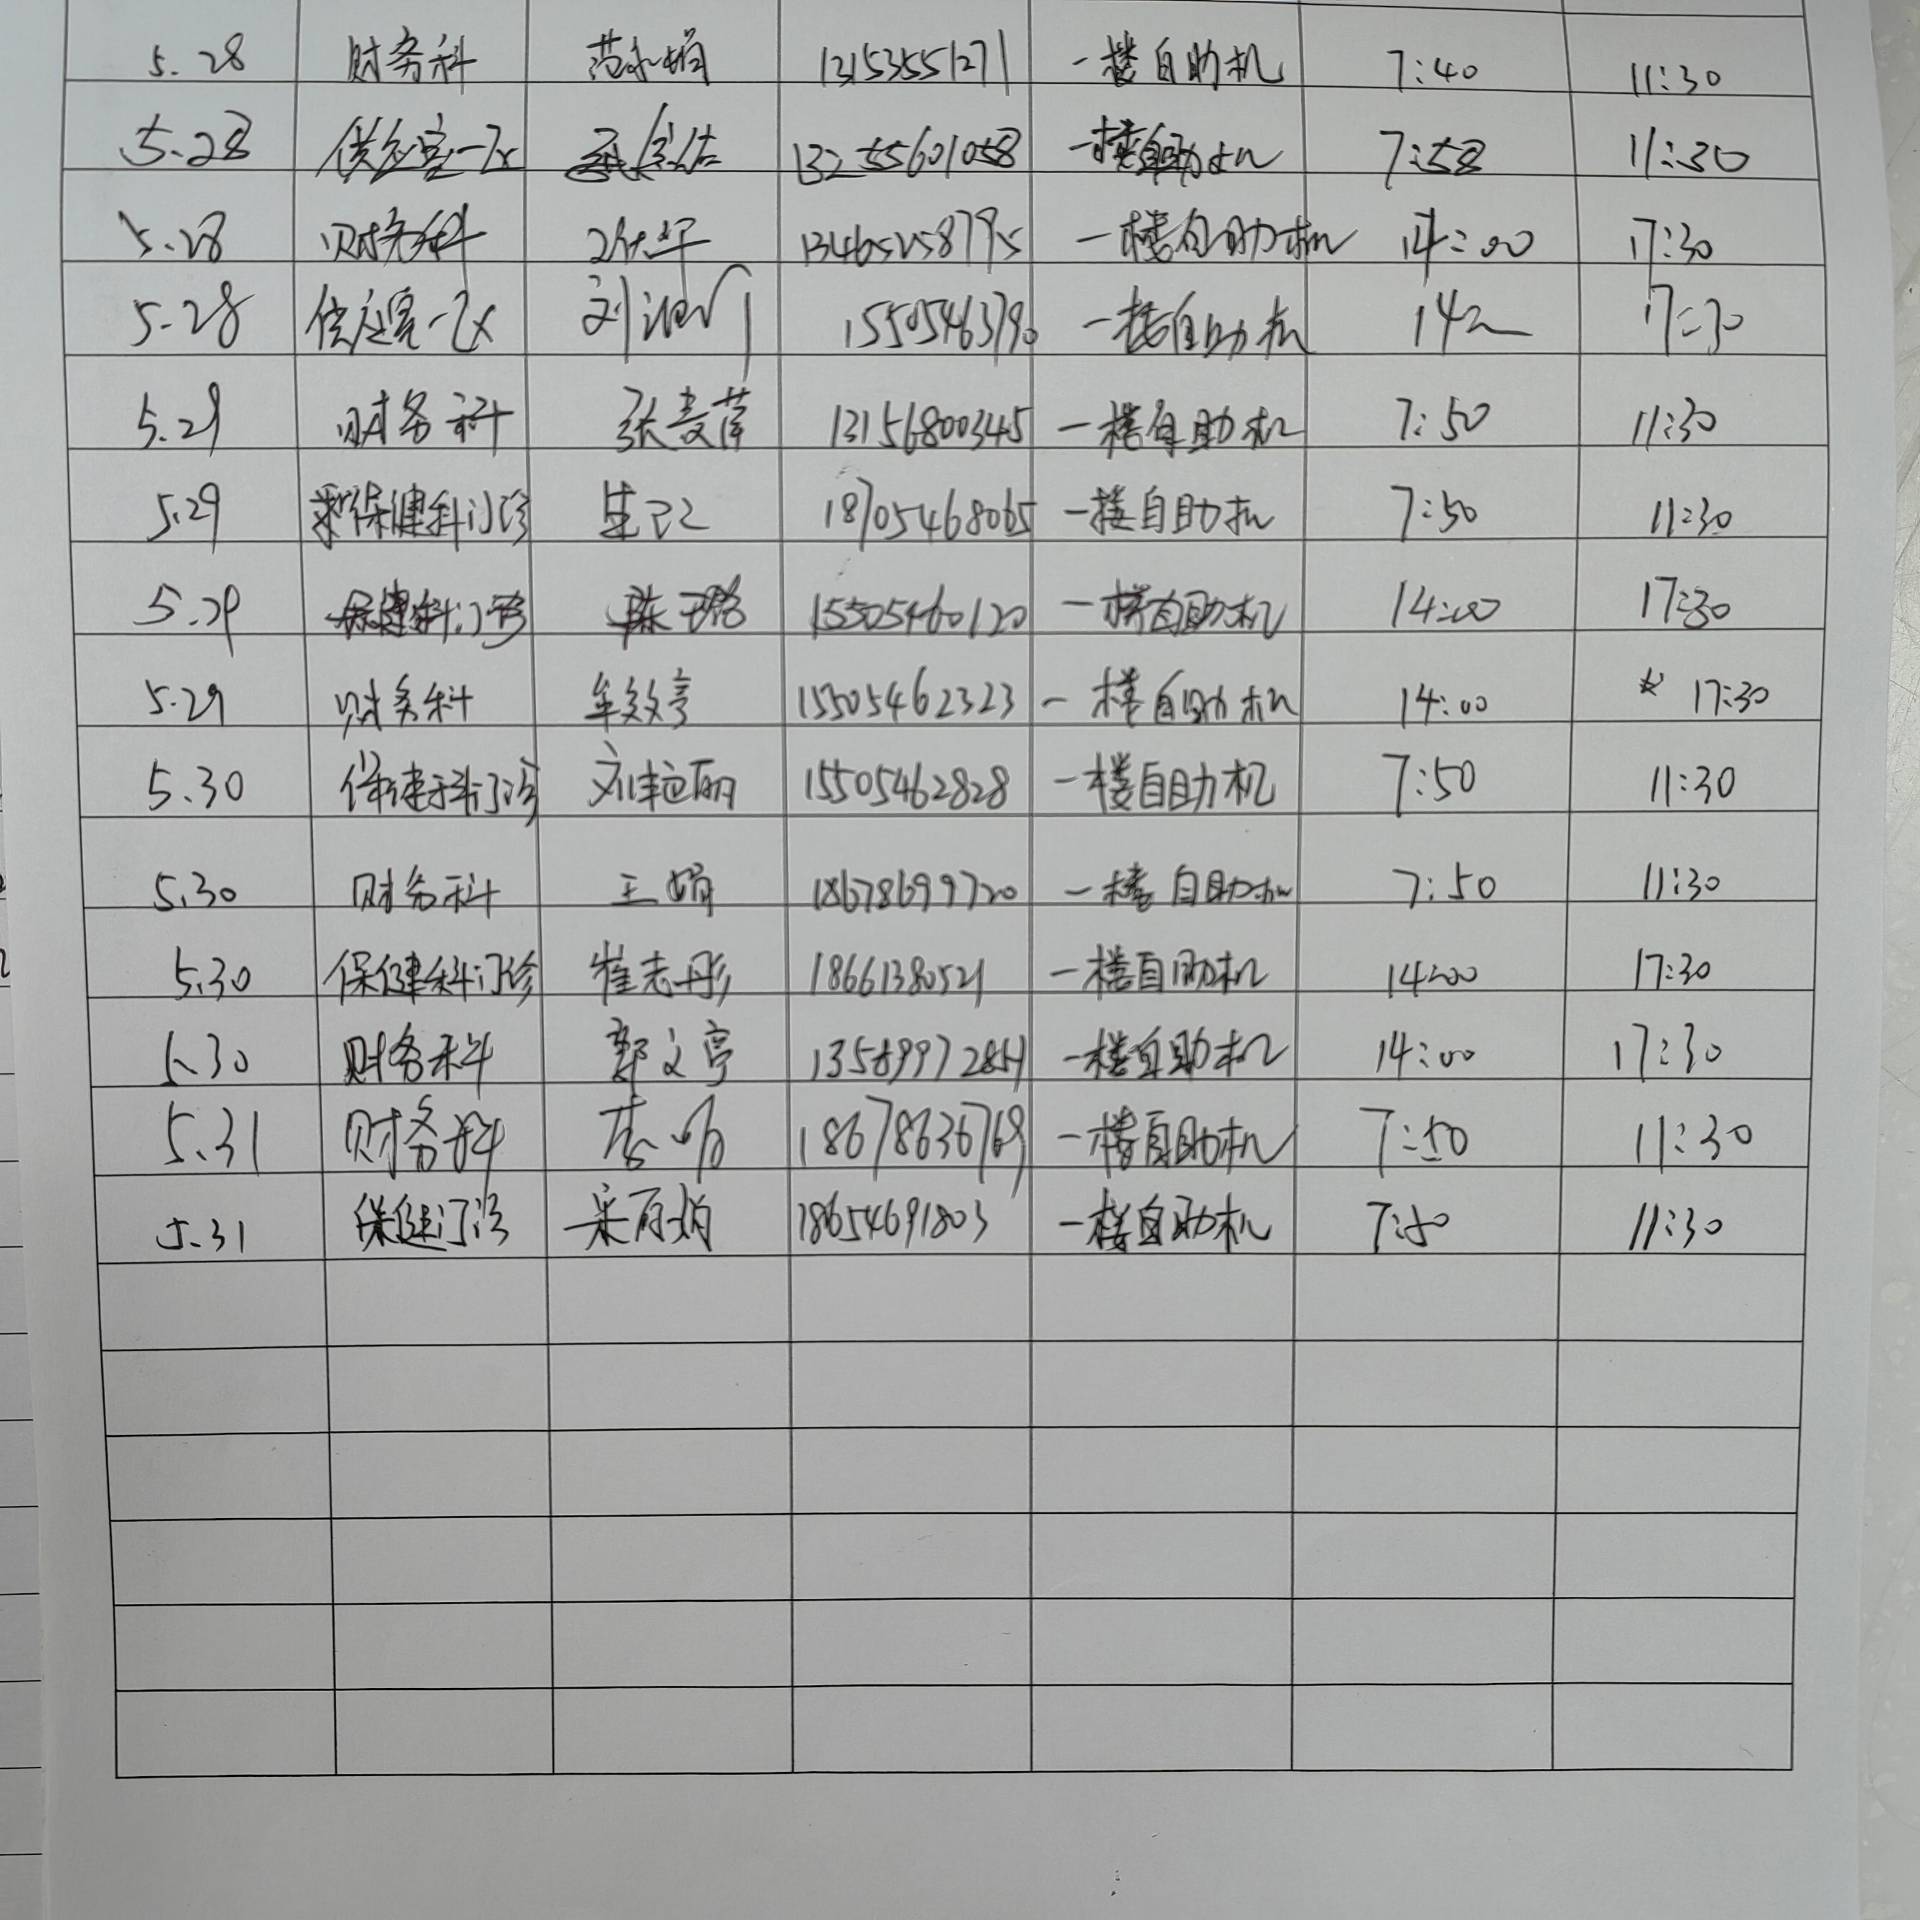 5.28 财务科 范 娟 13153551271 一楼自助机 7:40 11:30
5.28 供应室一区 13255601058 一楼自助机 7:58 11:30
5.28 财务科 13465258795 一楼自助机 14:00 17:30
5.28 供应室一区 刘 15505463790 一楼自助机 14 17:30
5.29 财务科 张 萍 13156800345 一楼自助机 7:50 11:30
5.29 保健科门诊 18705468065 一楼自助机 7:50 11:30
5.29 保健科门诊 陈 15505460120 一楼自助机 14:00 17:30
5.29 财务科 牟效亭 15505462323 一楼自助机 14:00 17:30
5.30 保健科门诊 刘艳丽 15505462828 一楼自助机 7:50 11:30
5.30 财务科 王娟 18678699720 一楼自助机 7:50 11:30
5.30 保健科门诊 崔志彤 18661380521 一楼自助机 14:00 17:30
5.30 财务科 郭文亭 一楼自助机 14:00 17:30
5.31 财务科 李 18678636769 一楼自助机 7:50 11:30
5.31 保健门诊 娟 18654691803 一楼自助机 7:50 11:30